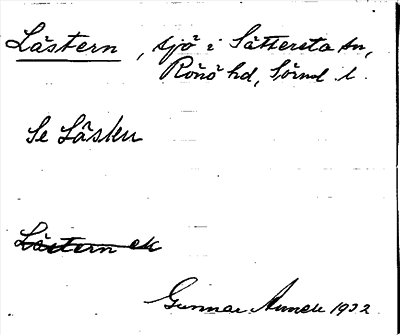 Lästern, sjö i Sättersta sn,
Rönö hd, Sörml l.
Se Låsku
Lästern ek
Gunnar 1932